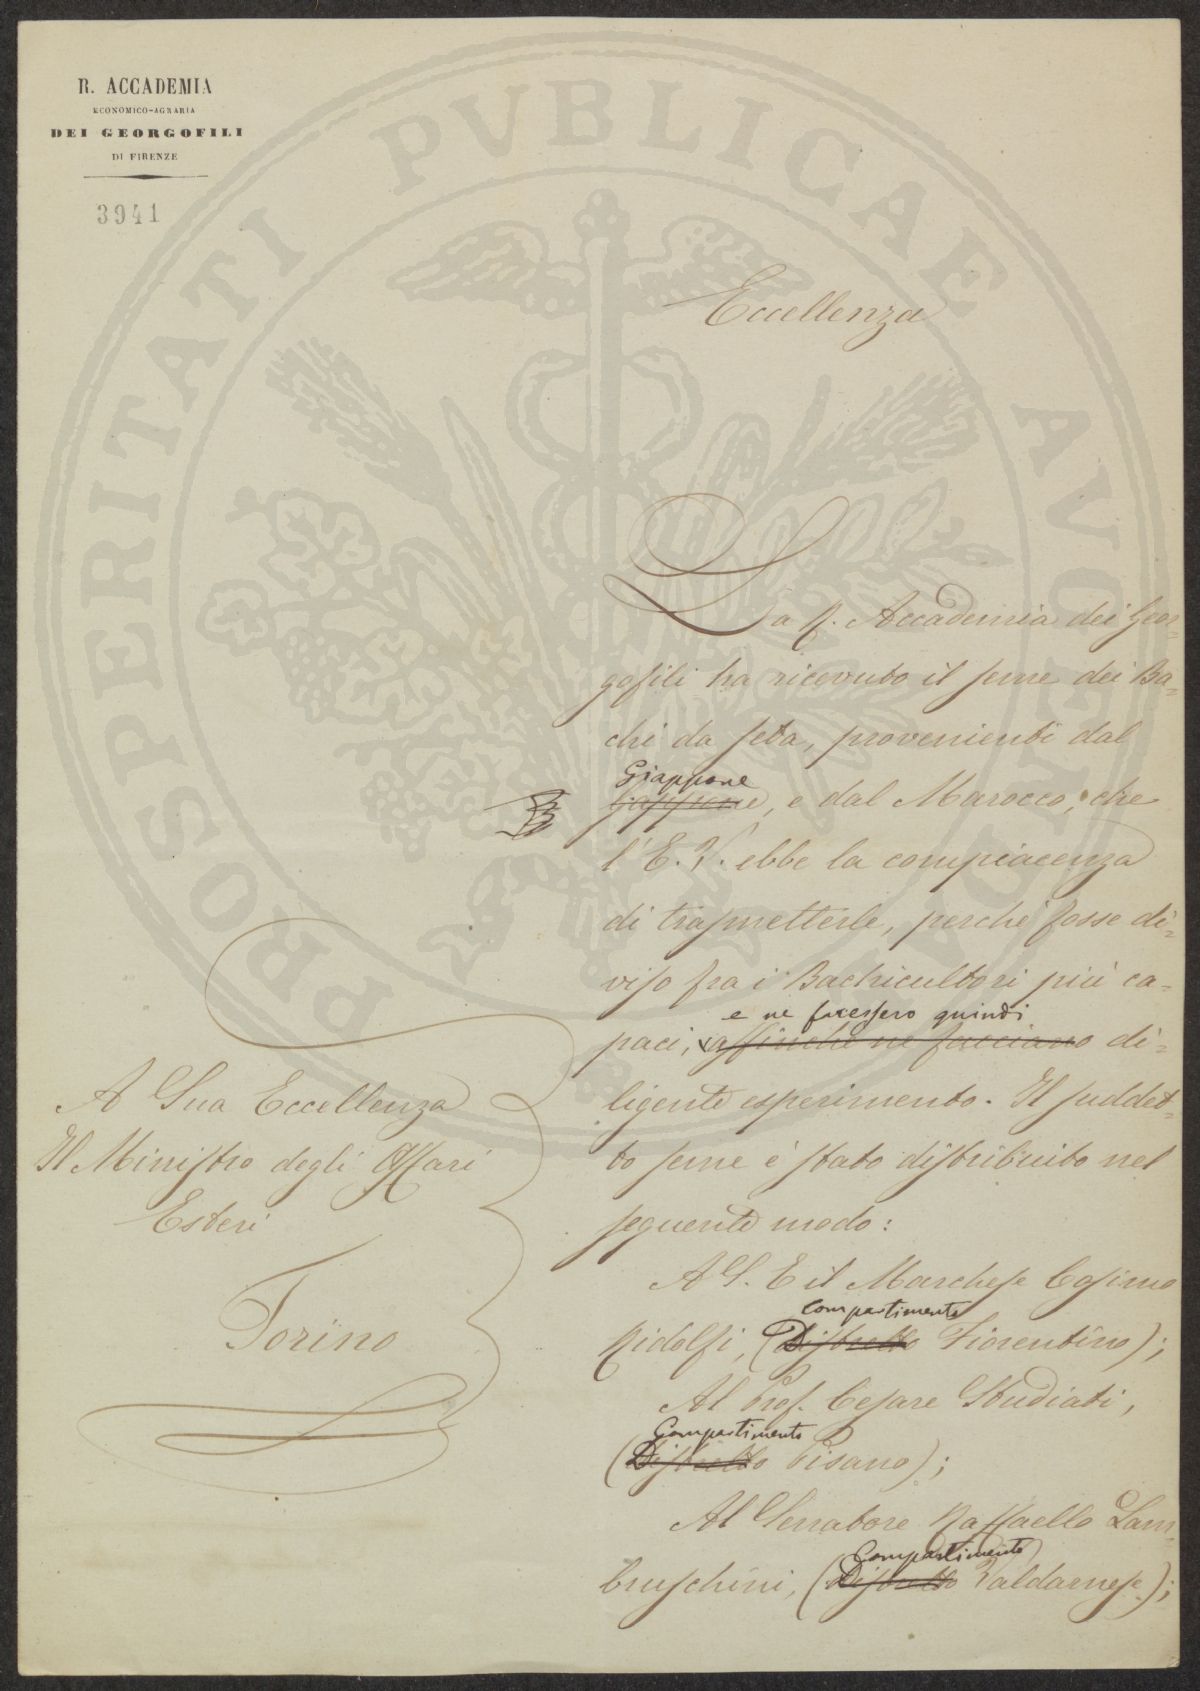 R. ACCADEMIA
ECONOMICO-AGRARIA
DEI GEORGOFILI
DI FIRENZE
3941
PROSPERITATI PUBLICAE AVGENDAE
Eccellenza
La R. Accademia dei Geor=
gofili ha ricevuto il seme dei Ba=
chi da seta, provenienti dal
Giappone
Gappone, e dal Marocco, che
l'E. V. ebbe la compiacenza
di trasmetterle, perché fosse di=
viso fra i Bachicultori più ca=
e ne facessero quindi
paci, affinché ne facciano di=
ligente esperimento. Il suddet=
to seme è stato distribuito nel
seguente modo:
A S. E il Marchese Cosimo
Compartimento
Ridolfi, (Distretto Fiorentino);
Al Prof. Cesare Studiati,
Compartimento
(Distretto Pisano);
Al Senatore Raffaello Lam=
Compartimento
bruschini, (Distretto Valdarnese);
A Sua Eccellenza
Il Ministro degli Affari
Esteri
Torino